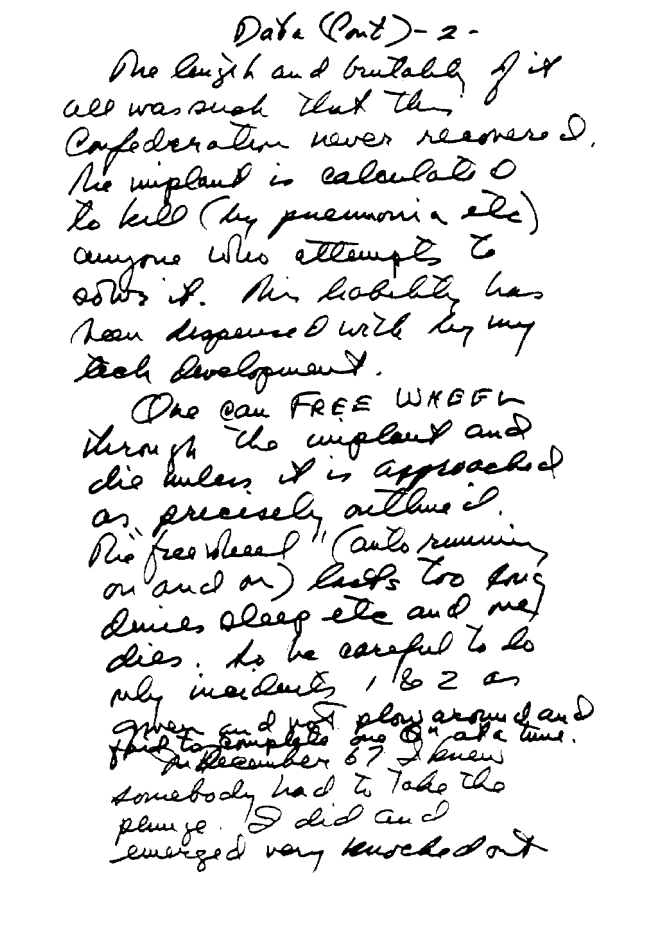 Data (Cont) - 2 -
The length and brutality of it
all was such that this
Confederation never recovered.
The implant is calculated
to kill (by pneumonia etc)
anyone who attempts to
solve it. This liability has
been dispensed with by my
tech development.
One can FREE WHEEL
through the implant and
die unless it is approached
as precisely outlined.
The "free wheel" (auto running
on and on) lasts too long
denies sleep etc and one
dies. So be careful to do
only incidents 1 & 2 as
given and not plow around and
fail to complete one at a time.
In December 67 I knew
somebody had to take the
plunge. I did and
emerged very knocked out